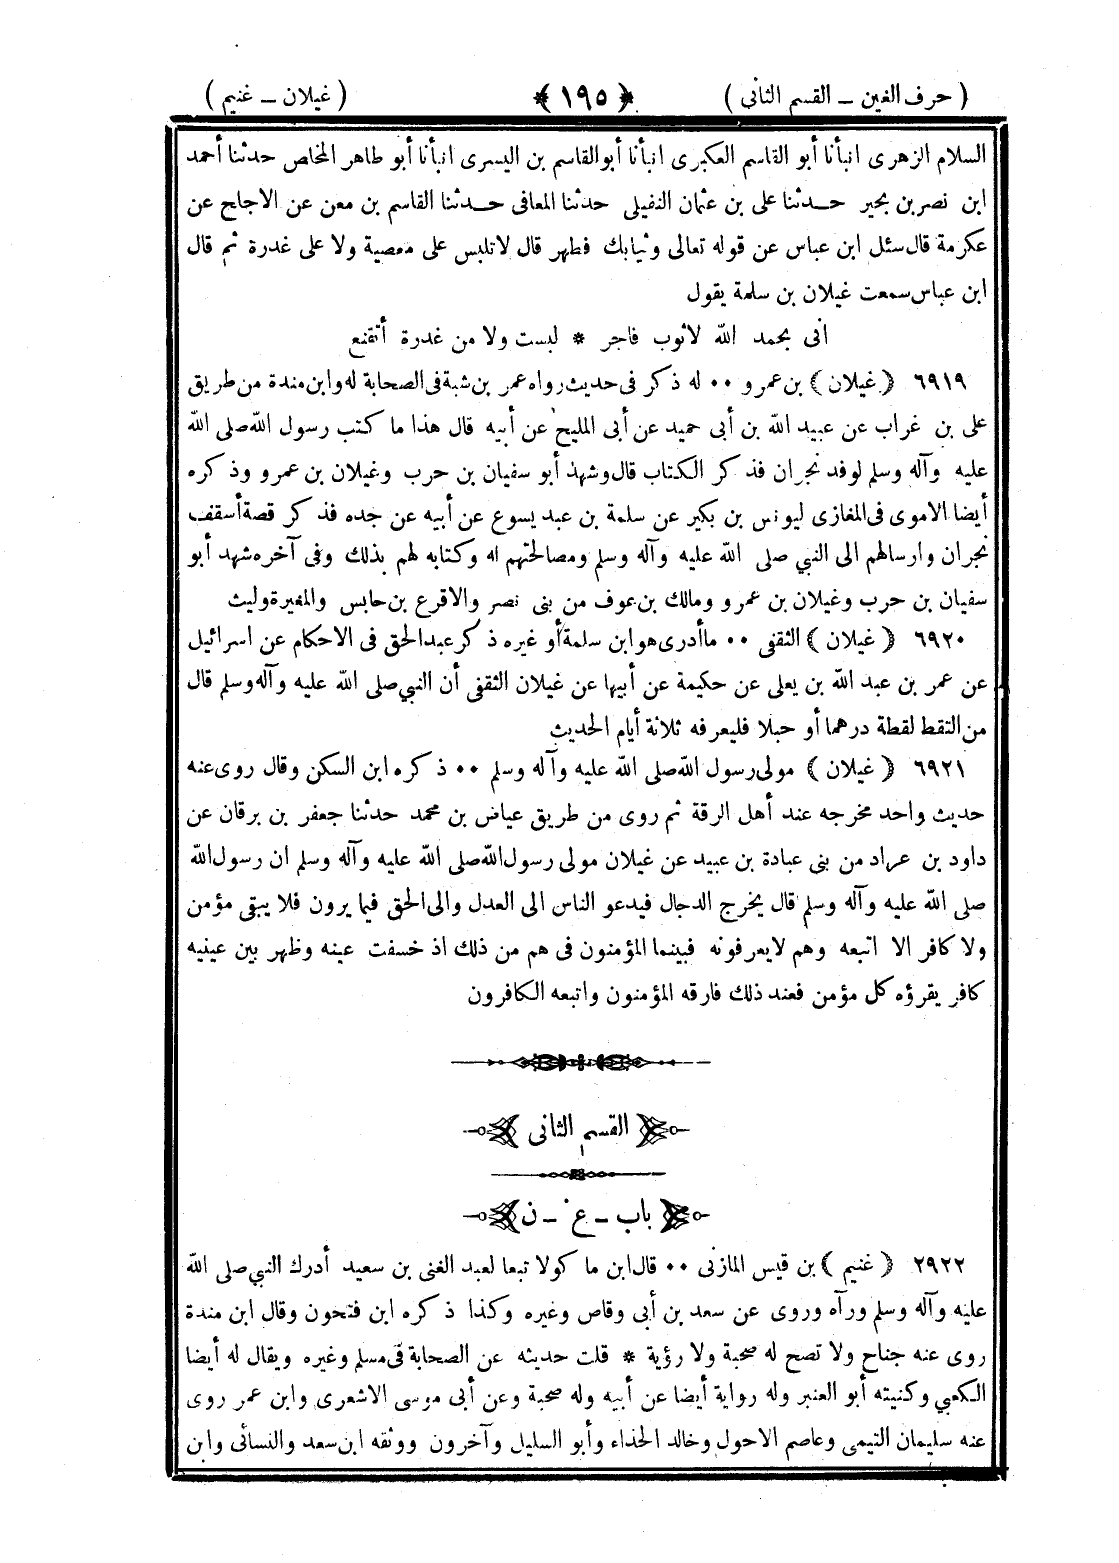 ( حرف الغين ــ القسم الثانى ) ﴿ ١٩٥ ﴾ ( غيلان ــ غنيم )
السلام الزهرى انبأنا أبو القاسم العكبرى انبأنا أبوالقاسم بن اليسرى انبأنا أبو طاهر المخاص حدثنا أحمد
ابن نصربن بحير حـدثنا على بن عثمان النفيلى حدثنا المعافى حـدثنا القاسم بن معن عن الاجلح عن
عكرمة قال سئل ابن عباس عن قوله تعالى وثيابك فطهر قال لاتلبس على معصية ولا على غدرة ثم قال
ابن عباس سمعت غيلان بن سلمة يقول
انى بحمد الله لا ثوب فاجر * لبست ولا من غدرة أتقنع
٦٩١٩ ﴿ غيلان ﴾ بن عمرو ٠٠ له ذكر فى حديث رواه عمر بن شبة فى الصحابة له وابن مندة من طريق
على بن غراب عن عبيد الله بن أبى حميد عن أبى المليح عن أبيه قال هذا ما كتب رسول الله صلى الله
عليه وآله وسلم لوفد نجران فذكر الكتاب قال وشهد أبو سفيان بن حرب وغيلان بن عمرو وذكره
أيضا الاموى فى المغازى ليونس بن بكير عن سلمة بن عبد يسوع عن أبيه عن جده فذكر قصة أسقف
نجران وارسالهم الى النبي صلى الله عليه وآله وسلم ومصالحتهم له وكتابه لهم بذلك وفى آخره شهد أبو
سفيان بن حرب وغيلان بن عمرو ومالك بن عوف من بنى نصر والاقرع بن حابس والمغيرة وليث
٦٩٢٠ ﴿ غيلان ﴾ الثقفى ٠٠ ماأدرى هو ابن سلمة أو غيره ذكر عبد الحق فى الاحكام عن اسرائيل
عن عمر بن عبد الله بن يعلى عن حكيمة عن أبيها عن غيلان الثقفى أن النبي صلى الله عليه وآله وسلم قال
من التقط لقطة درهما أو حبلا فليعرفه ثلاثة أيام الحديث
٦٩٢١ ﴿ غيلان ﴾ مولى رسول الله صلى الله عليه وآله وسلم ٠٠ ذكره ابن السكن وقال روى عنه
حديث واحد مخرجه عند أهل الرقة ثم روى من طريق عياض بن محمد حدثنا جعفر بن برقان عن
داود بن عراد من بنى عبادة بن عبيد عن غيلان مولى رسول الله صلى الله عليه وآله وسلم ان رسول الله
صلى الله عليه وآله وسلم قال يخرج الدجال فيدعو الناس الى العدل والى الحق فيما يرون فلا يبقى مؤمن
ولا كافر الا اتبعه وهم لايعرفونه فبينما المؤمنون فى هم من ذلك اذ خسفت عينه وظهر بين عينيه
كافر يقرؤه كل مؤمن فعند ذلك فارقه المؤمنون واتبعه الكافرون
القسم الثانى
باب ــ غ ــ ن
٢٩٢٢ ﴿ غنيم ﴾ بن قيس المازنى ٠٠ قال ابن ما كولا تبعا لعبد الغنى بن سعيد أدرك النبي صلى الله
عليه وآله وسلم ورآه وروى عن سعد بن أبى وقاص وغيره وكذا ذكره ابن فتحون وقال ابن مندة
روى عنه جناح ولا تصح له صحبة ولا رؤية * قلت حديثه عن الصحابة فى مسلم وغيره ويقال له أيضا
الكعبي وكنيته أبو العنبر وله رواية أيضا عن أبيه وله صحبة وعن أبى موسى الاشعرى وابن عمر روى
عنه سليمان التيمى وعاصم الاحول وخالد الحذاء وأبو السليل وآخرون ووثقه ابن سعد والنسائى وابن